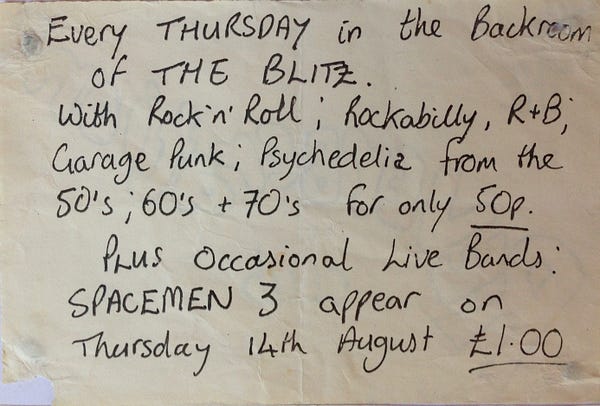 Every THURSDAY in the Backroom
of THE BLITZ.
With Rock'n'Roll; Rockabilly, R+B;
Garage Punk; Psychedelia from the
50's; 60's + 70's for only 50p.
PLUS Occasional Live Bands:
SPACEMEN 3 appear on
Thursday 14th August £1.00